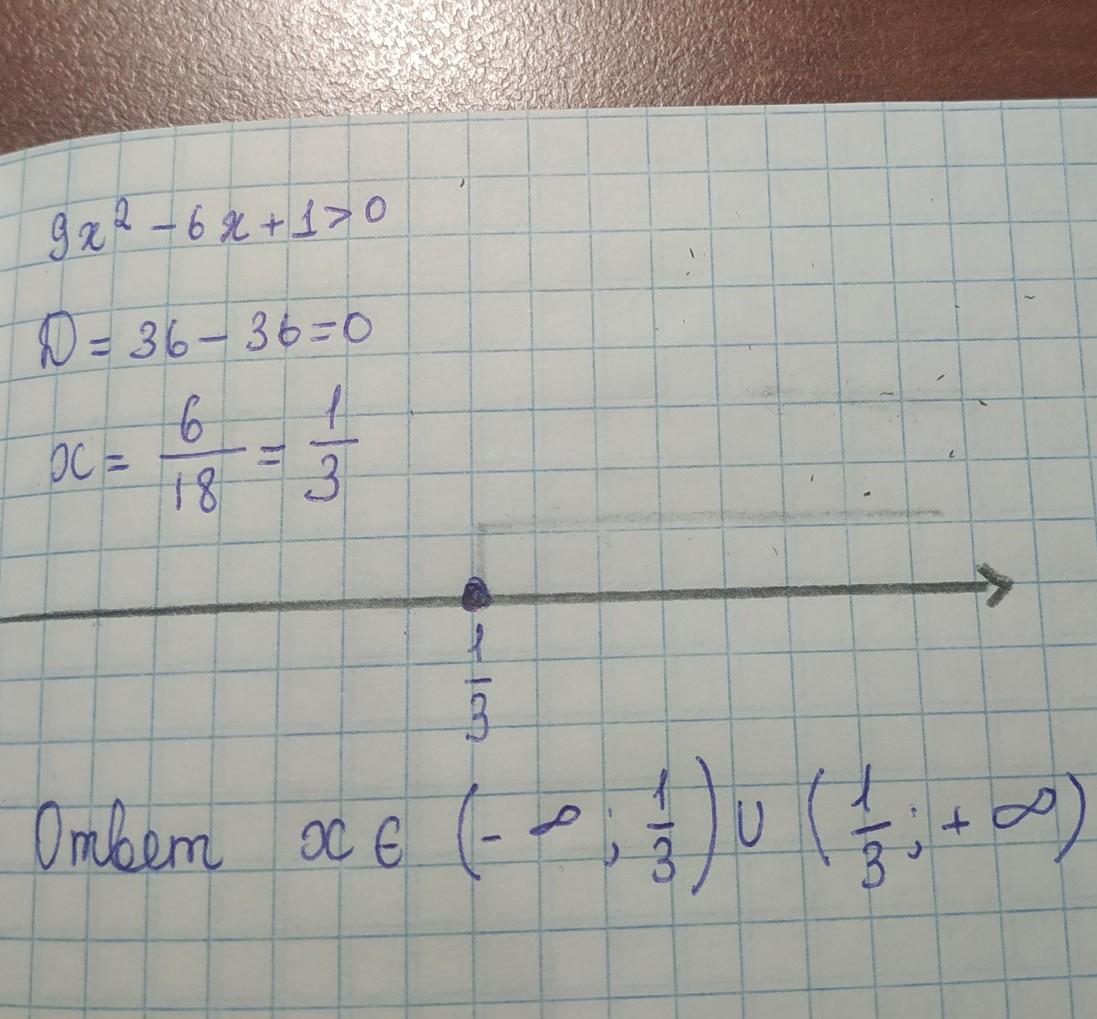 9x² - 6x + 1 > 0
D = 36 - 36 = 0
x = 6/18 = 1/3
1/3
Ответ x ∈ (-∞; 1/3) ∪ (1/3; +∞)